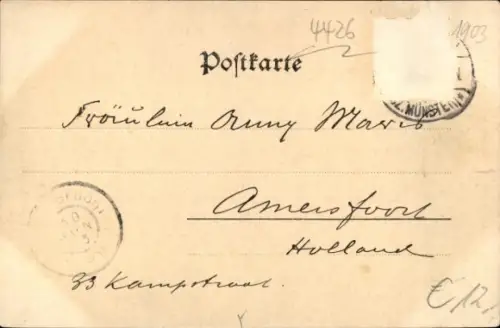 4426
1903
Postkarte
MÜNSTER
Fräulein Anny Maris
Amersfoort
Holland
33 Kampstraat.
€ 12